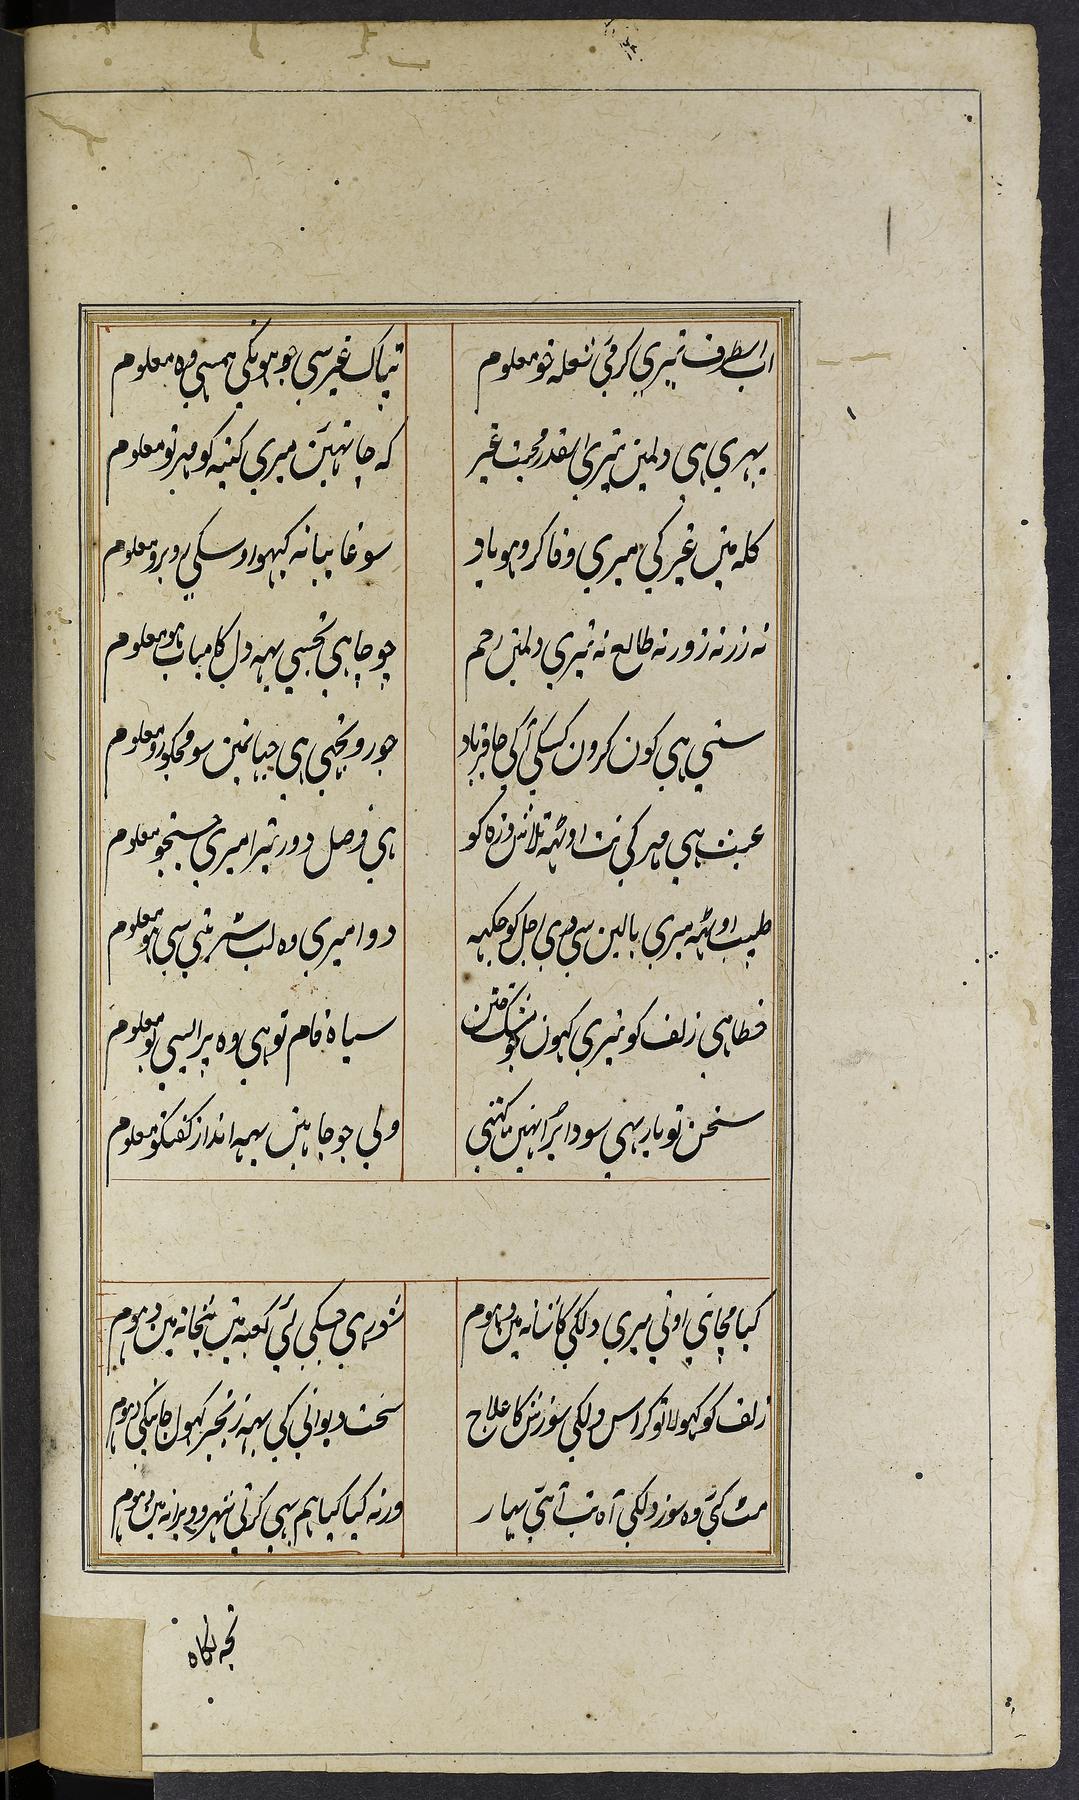 اب اسطرف تیری کرمیٔ شعله خو معلوم
تپاک غیر سی جو هونکی همسی وه معلوم
بهری هی دلمین تیری اسقدر محبت غیر
که جا نهین میری کینه کو مهر تو معلوم
کله مین غیر کی میری وفا کرو هو یاد
سو غایبانه کهو اوسکی روبرو معلوم
نه زر نه زور نه طالع نه تیری دلمین رحم
جو چاهی تجسی یهه دل کامیاب هو معلوم
سنی هی کون کرون کسکی آکی جا فریاد
جو رو تجهی هی جهانمین سو مجکو رو معلوم
عبث هی مهر کی نت اوٹهه تلاش ذره کو
هی وصل دور تیرا میری جستجو معلوم
طبیب اوٹهه میری بالین سی دی اجل کو جکهه
دوا میری وه لب شربتی سی هو معلوم
خطا هی زلف کو تیری کهون کو مشک ختن
سیاه فام تو هی وه پر ایسی بو معلوم
سخن تو یار بهی سودا برا نهین کهتی
ولی جو چاهین یهه انداز کفتکو معلوم
کیا مچائی اونی میری دلکی کاشانه مین دهوم
شور هی جسکی لئی کعبه مین بتخانه مین دهوم
زلف کو کهولا تو کر اس دلکی شورش کا علاج
سخت دیوانی کی یهه زنجیر کهول جانیکی دهوم
مٹ کئی وه سوز دلکی آه تب آهی بهار
ورنه کیا کیا هم بهی کرتی شهر و ویرانه مین دهوم
تجه نکاه